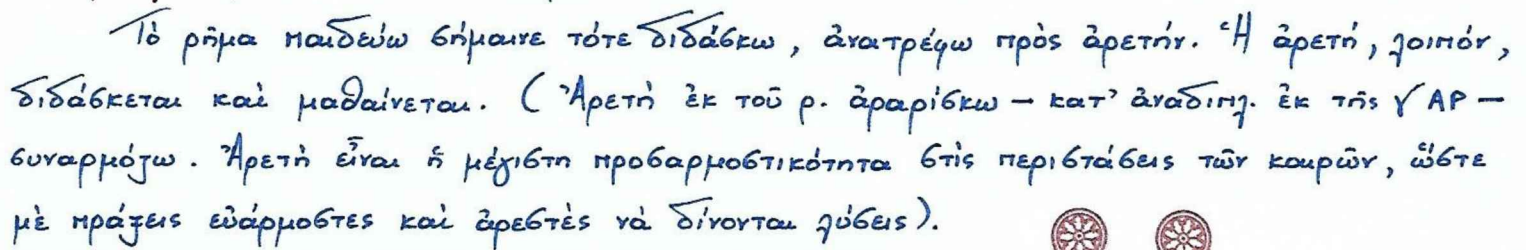 Τὸ ρῆμα παιδεύω σήμαινε τότε διδάσκω, ἀνατρέφω πρὸς ἀρετήν. Ἡ ἀρετή, λοιπόν,
διδάσκεται καὶ μαθαίνεται. (Ἀρετὴ ἐκ τοῦ ρ. ἀραρίσκω – κατ' ἀναδιπλ. ἐκ τῆς √ ΑΡ –
συναρμόζω. Ἀρετὴ εἶναι ἡ μέγιστη προσαρμοστικότητα στὶς περιστάσεις τῶν καιρῶν, ὥστε
μὲ πράξεις εὐάρμοστες καὶ ἀρεστὲς νὰ δίνονται λύσεις).